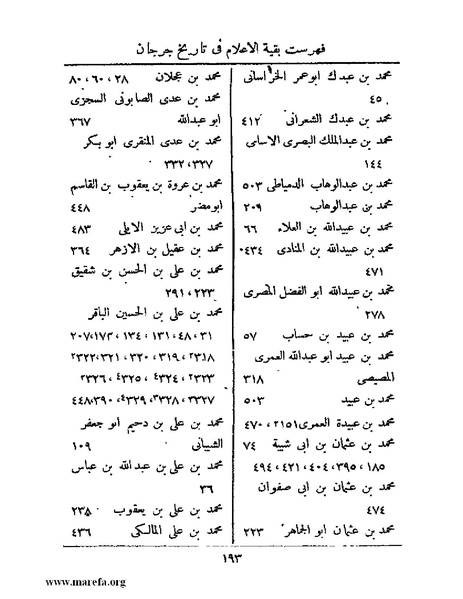 فهرست بقية الاعلام فى تاريخ جرجان
محمد بن عبدك ابو عمر الخراسانى
٤٥
محمد بن عبدك الشعرانى ٤١٢
محمد بن عبدالملك البصرى الاسامى
١٤٤
محمد بن عبدالوهاب الدمياطى ٥٠٣
محمد بن عبدالوهاب ٢٠٩
محمد بن عبيدالله بن العلاء ٦٦
محمد بن عبيدالله بن المنادى ٤٣٤،
٤٧١
محمد بن عبيدالله ابو الفضل المصرى
٢٧٨
محمد بن عبيد بن حساب ٥٧
محمد بن عبيد ابو عبدالله العمرى
المصيصى ٣١٨
محمد بن عبيد ٥٠٣
محمد بن عبيدة العمرى ٢١٥١، ٤٧٠
محمد بن عثمان بن ابى شيبة ٧٤
١٨٥، ٣٩٥، ٤٠٤، ٤٢١، ٤٩٤
محمد بن عثمان بن ابى صفوان
٤٧٤
محمد بن عثمان ابو الجماهر ٢٢٣
محمد بن عجلان ٢٨، ٦٠، ٨٠
محمد بن عدى الصابونى السجزى
ابو عبدالله ٣٦٧
محمد بن عدى المنقرى ابو بكر
٣٢٧، ٣٣٢
محمد بن عروة بن يعقوب بن القاسم
ابو مضر ٤٤٨
محمد بن ابى عزيز الايلى ٤٨٣
محمد بن عقيل بن الازهر ٣٦٤
محمد بن على بن الحسن بن شقيق
٢٢٣، ٢٩١
محمد بن على بن الحسين الباقر
٣١، ٤٨، ١٣١، ١٣٤، ١٧٣، ٢٠٧
٣١٨²، ٣١٩، ٣٢٠، ٣٢١، ٣٢٢²
٣٢٣²، ٣٢٤²، ٣٢٥⁴، ٣٢٦²
٣٢٧²، ٣٢٨²، ٣٢٩⁴، ٣٩٠، ٤٤٨
محمد بن على بن دحيم ابو جعفر
الشيبانى ١٠٩
محمد بن على بن عبدالله بن عباس
٣٦
محمد بن على بن يعقوب ٢٣٥
محمد بن على المالكى ٤٣٦
١٩٣
www.marefa.org